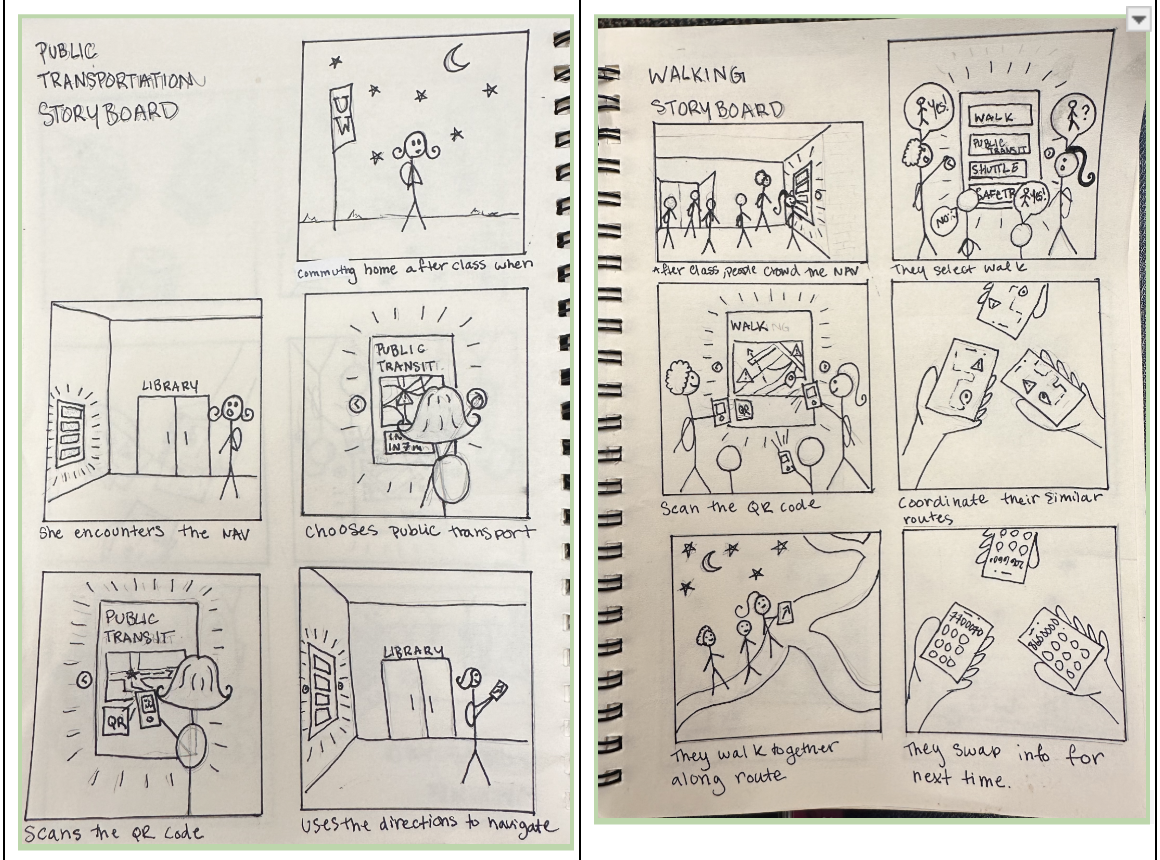 PUBLIC
TRANSPORTATION
STORYBOARD
UW
Commuting home after class when
LIBRARY
She encounters the NAV
PUBLIC
TRANSIT
IN 7m
Chooses public transport
PUBLIC
TRANSIT
QR
Scans the QR code
LIBRARY
Uses the directions to navigate
WALKING
STORYBOARD
After class, people crowd the NAV
YES!
?
WALK
PUBLIC
TRANSIT
SHUTTLE
SAFETR
YES!
NO?
They select walk
WALKING
QR
Scan the QR code
Coordinate their similar
routes
They walk together
along route
They swap info for
next time.